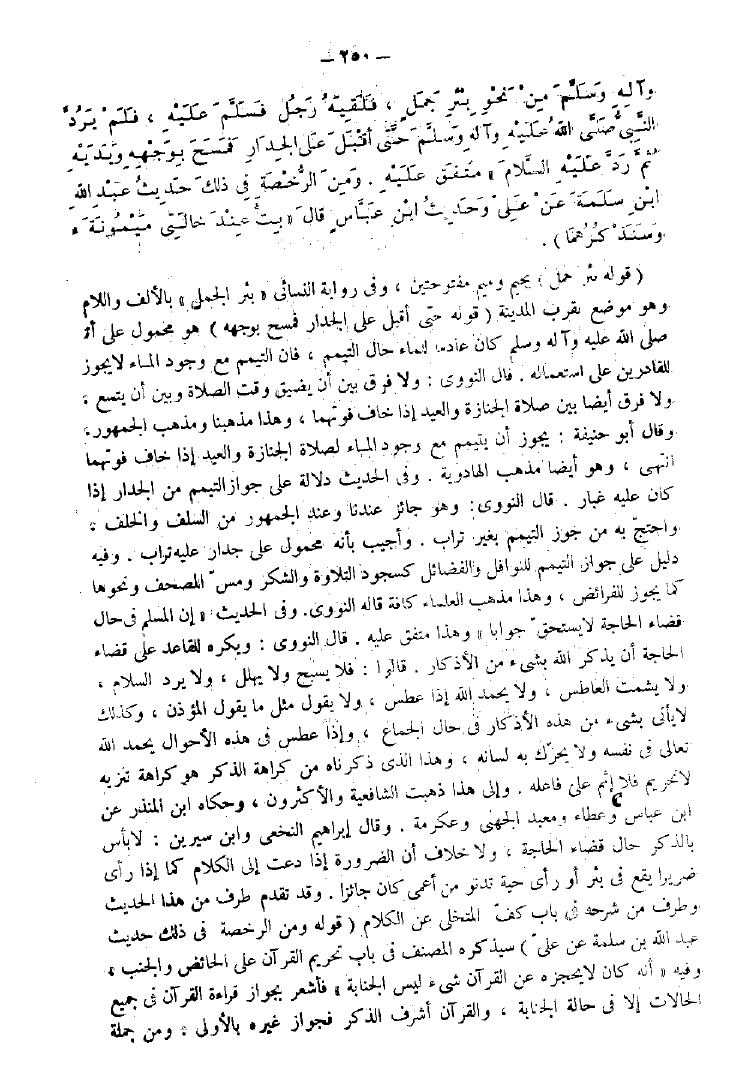 — ٢٥٠ —
وَآلِهِ وَسَلَّمَ مِنْ نَحْوِ بِئْرِ جَمَلٍ ، فَلَقِيَهُ رَجُلٌ فَسَلَّمَ عَلَيْهِ ، فَلَمْ يَرُدَّ
النَّبِيُّ صَلَّى اللهُ عَلَيْهِ وَآلِهِ وَسَلَّمَ حَتَّى أَقْبَلَ عَلَى الجِدَارِ فَمَسَحَ بِوَجْهِهِ وَيَدَيْهِ
ثُمَّ رَدَّ عَلَيْهِ السَّلَامَ » مُتَّفَقٌ عَلَيْهِ . وَمِنَ الرُّخْصَةِ فِي ذلكَ حَدِيثُ عَبْدِ اللهِ
ابْنِ سَلِمَةَ عَنْ عَلِيٍّ وَحَدِيثُ ابْنِ عَبَّاسٍ قالَ « بِتُّ عِنْدَ خَالَتِي مَيْمُونَةَ »
وَسَنَذْكُرُهُمَا ) .
( قوله بئر جمل ) بجيم وميم مفتوحتين ، وفى رواية النسائى « بئر الجمل » بالألف واللام
وهو موضع بقرب المدينة ( قوله حتى أقبل على الجدار فمسح بوجهه ) هو محمول على أنه
صلى الله عليه وآله وسلم كان عادما للماء حال التيمم ، فان التيمم مع وجود الماء لايجوز
للقادرين على استعماله . قال النووى : ولا فرق بين أن يضيق وقت الصلاة وبين أن يتسع ،
ولا فرق أيضا بين صلاة الجنازة والعيد إذا خاف فوتهما ، وهذا مذهبنا ومذهب الجمهور ،
وقال أبو حنيفة : يجوز أن يتيمم مع وجود الماء لصلاة الجنازة والعيد إذا خاف فوتهما
انتهى ، وهو أيضا مذهب الهادوية . وفى الحديث دلالة على جواز التيمم من الجدار إذا
كان عليه غبار . قال النووى : وهو جائز عندنا وعند الجمهور من السلف والخلف ،
واحتجّ به من جوّز التيمم بغير تراب . وأجيب بأنه محمول على جدار عليه تراب . وفيه
دليل على جواز التيمم للنوافل والفضائل كسجود التلاوة والشكر ومسّ المصحف ونحوها
كما يجوز للفرائض ، وهذا مذهب العلماء كافة قاله النووى. وفى الحديث « إن المسلم فى حال
قضاء الحاجة لايستحقّ جوابا » وهذا متفق عليه . قال النووى : ويكره للقاعد على قضاء
الحاجة أن يذكر الله بشىء من الأذكار . قالوا : فلا يسبح ولا يهلل ، ولا يرد السلام ،
ولا يشمت العاطس ، ولا يحمد الله إذا عطس ، ولا يقول مثل ما يقول المؤذن ، وكذلك
لايأتى بشىء من هذه الأذكار فى حال الجماع ، وإذا عطس فى هذه الأحوال يحمد الله
تعالى فى نفسه ولا يحرّك به لسانه ، وهذا الذى ذكرناه من كراهة الذكر هو كراهة تنزيه
لاتحريم فلا إثم على فاعله . وإلى هذا ذهبت الشافعية والأكثرون ، وحكاه ابن المنذر عن
ابن عباس وعطاء ومعبد الجهنى وعكرمة . وقال إبراهيم النخعى وابن سيرين : لابأس
بالذكر حال قضاء الحاجة ، ولا خلاف أن الضرورة إذا دعت إلى الكلام كما إذا رأى
ضريرا يقع فى بئر أو رأى حية تدنو من أعمى كان جائزا . وقد تقدم طرف من هذا الحديث
وطرف من شرحه فى باب كفّ المتخلى عن الكلام ( قوله ومن الرخصة فى ذلك حديث
عبد الله بن سلمة عن علىّ ) سيذكره المصنف فى باب تحريم القرآن على الحائض والجنب ،
وفيه « أنه كان لايحجزه عن القرآن شىء ليس الجنابة » فأشعر بجواز قراءة القرآن فى جميع
الحالات إلا فى حالة الجنابة ، والقرآن أشرف الذكر فجواز غيره بالأولى ، ومن جملة